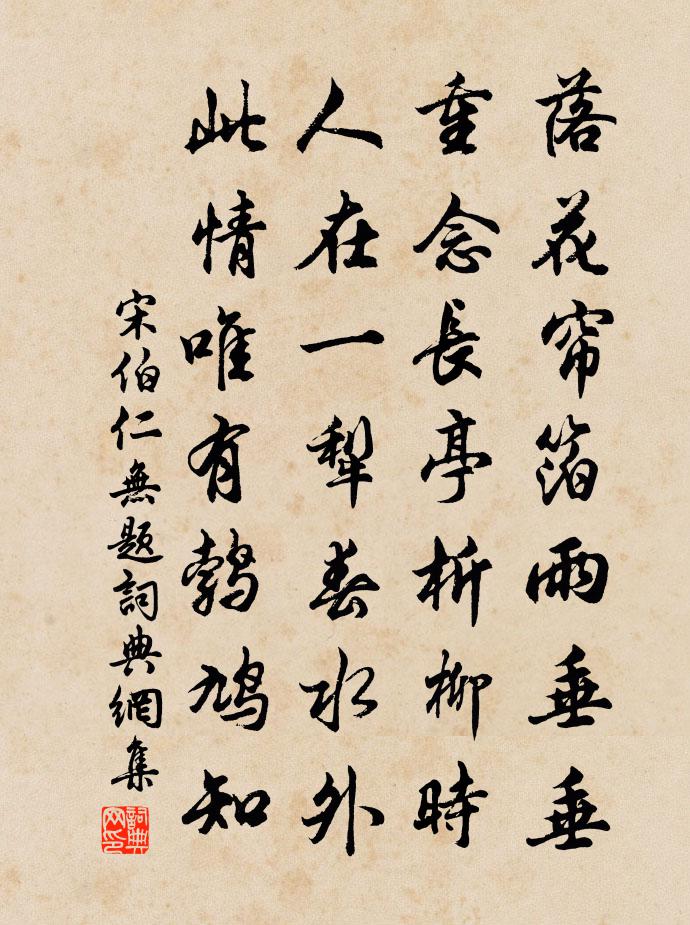 落花帘箔雨垂垂
重念長亭折柳時
人在一犁春水外
此情唯有鹁鸠知
宋伯仁無题詞典網集
詞典网印